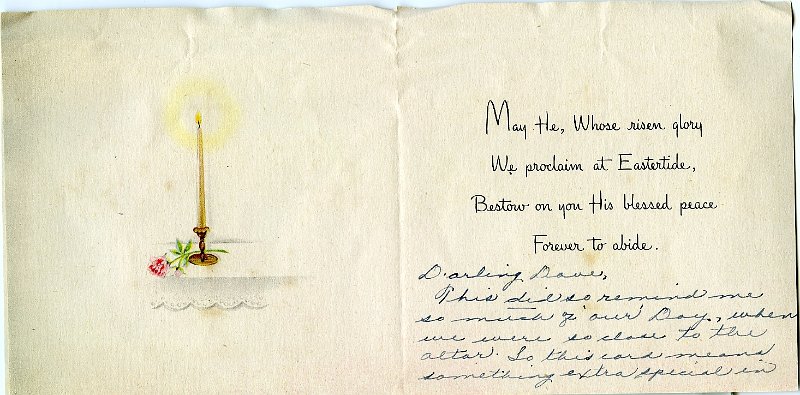 May He, Whose risen glory
We proclaim at Eastertide,
Bestow on you His blessed peace
Forever to abide.
Darling Dave,
This did so remind me
so much of 'our' Day, when
we were so close to the
altar. So this card means
something extra special in